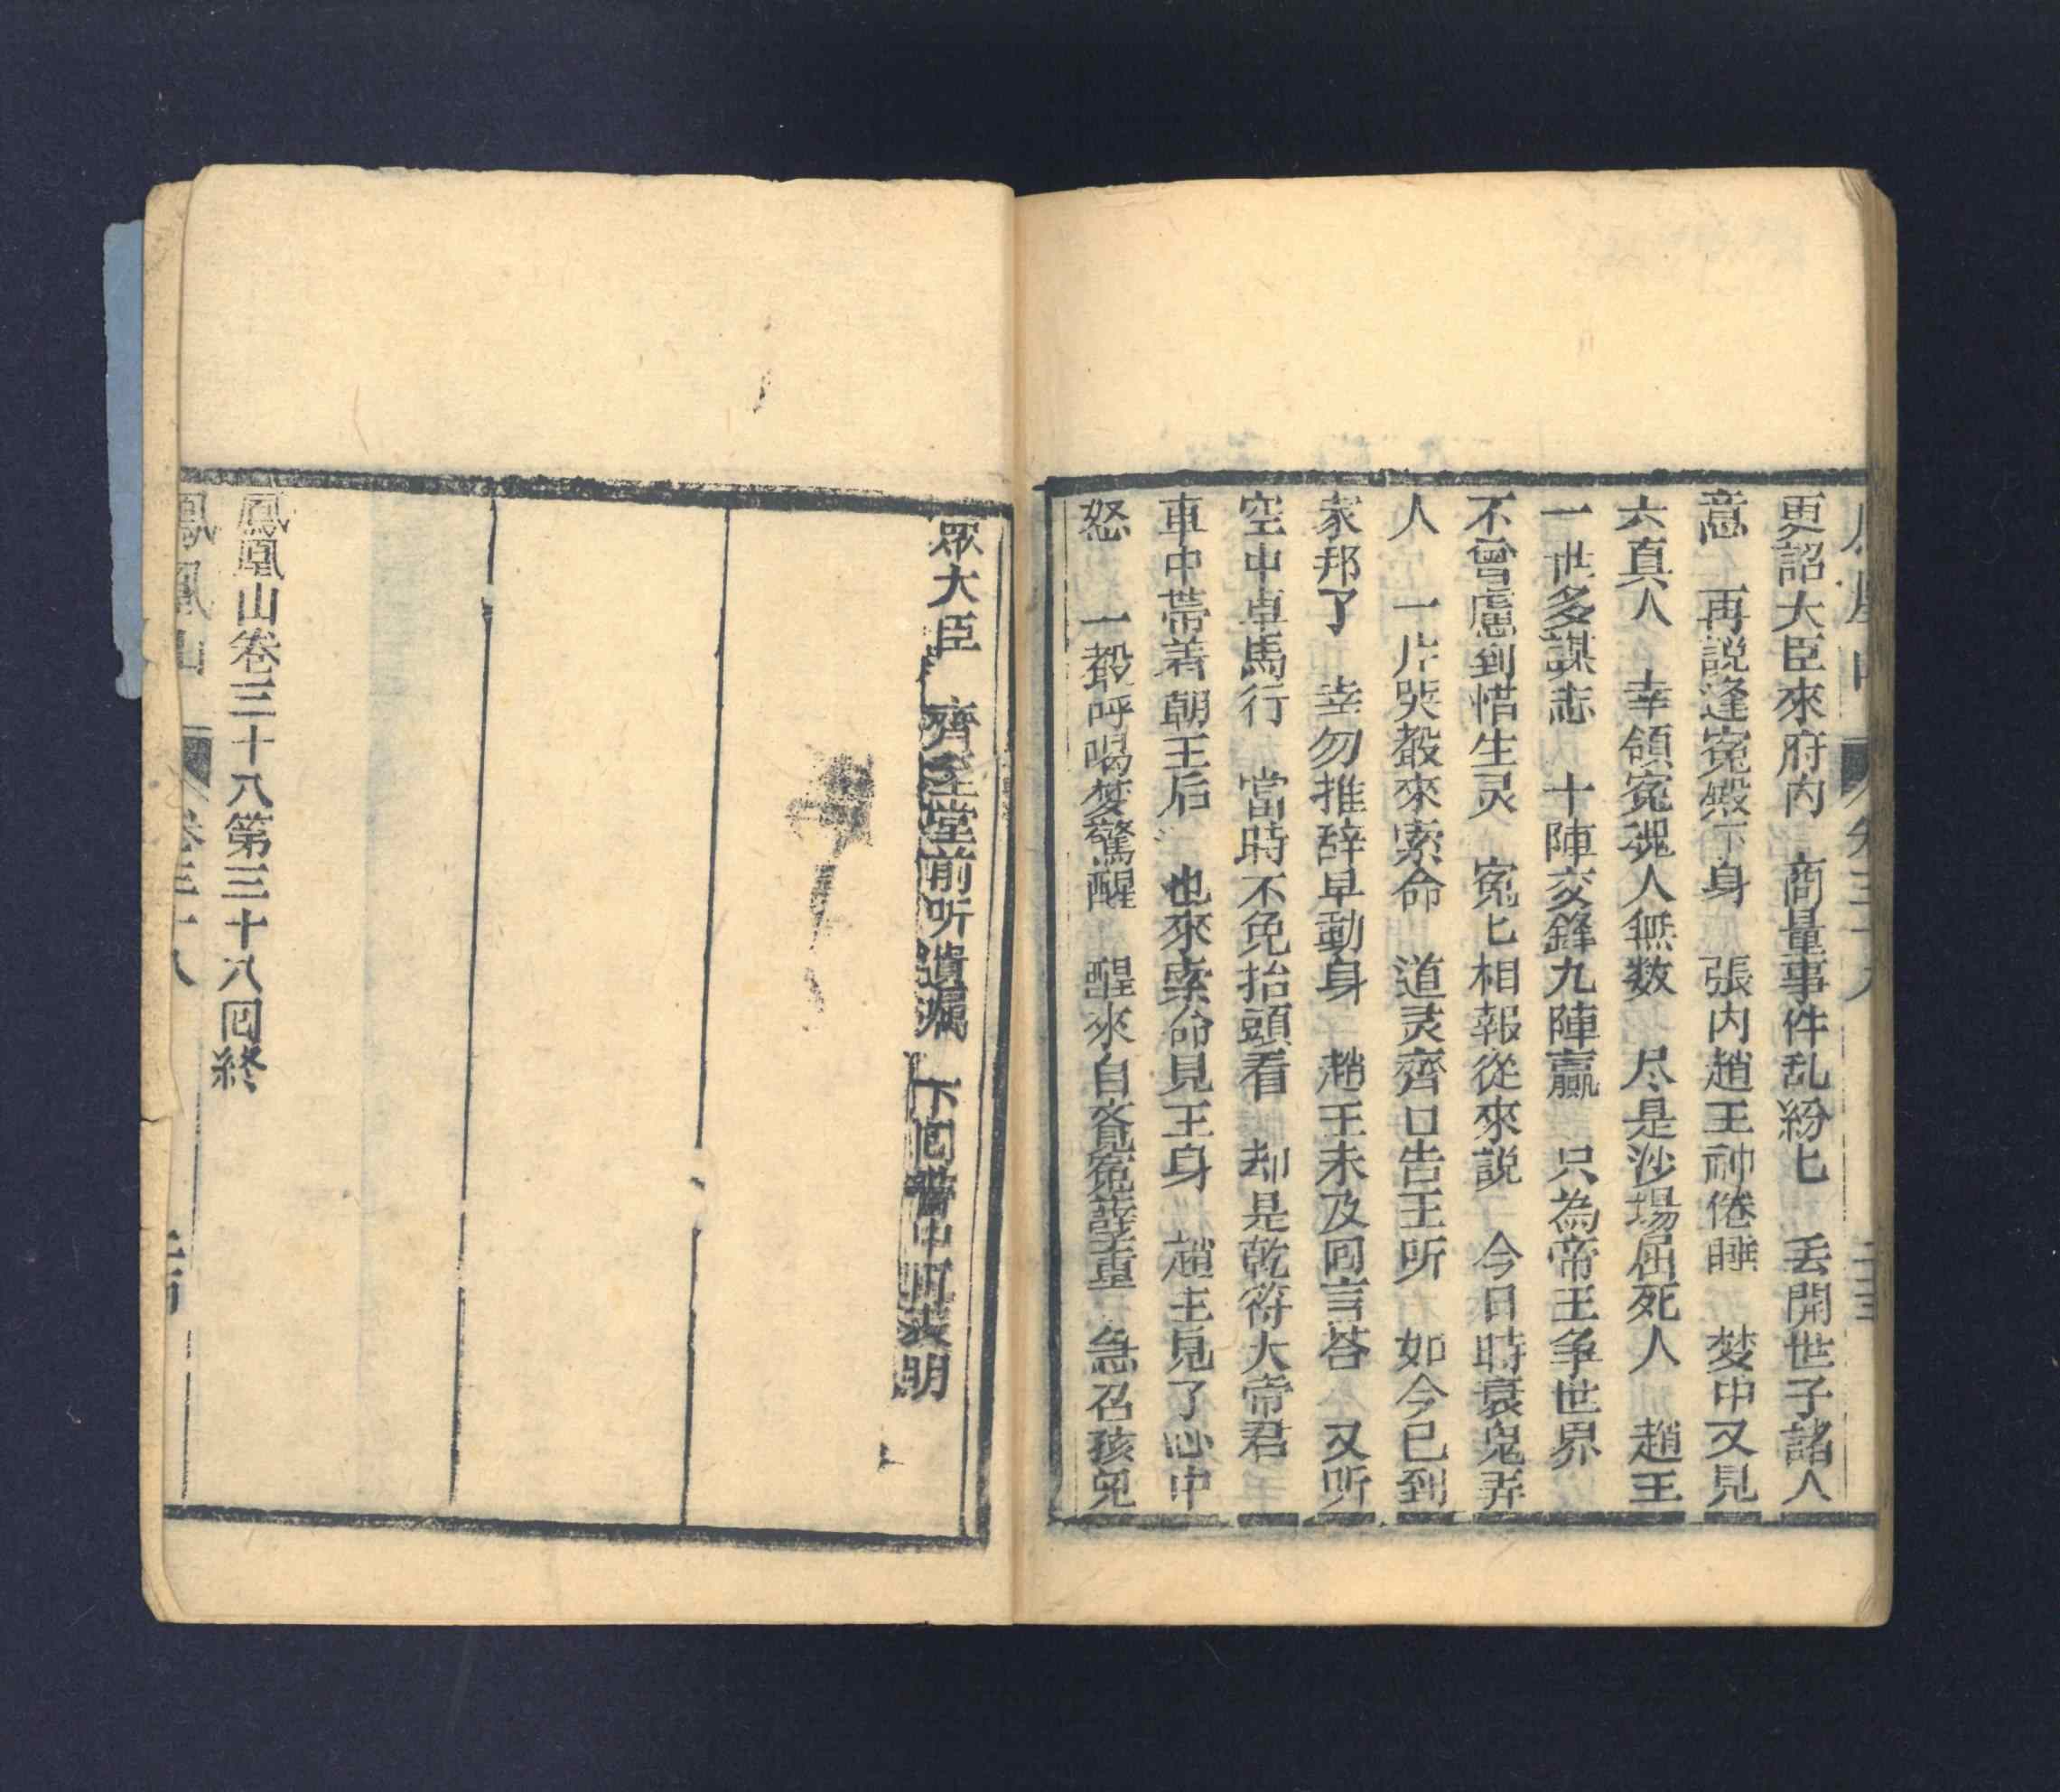 更詔大臣來府內　商量事件乱紛匕　丢開世子諸人
意　再説逢寃殿下身　張内趙王神倦睡　梦中又見
六真人　幸領寃魂人無数　尽是沙場屈死人　趙王
一世多謀志　十陣交鋒九陣贏　只為帝王争世界
不曾慮到惜生灵　寃匕相報從來説　今日時衰鬼弄
人　一片哭聲來索命　道灵齊口告王听　如今已到
家邦了　幸勿推辞早動身　趙王未及回言荅　又听
空中車馬行　當時不免抬頭看　却是乾符大帝君
車中帶着朝王后　也來索命見王身　趙王見了心中
怒　一聲呼喝梦驚醒　醒來自觉寃孽重　急召孩兒
眾大臣　齊至堂前听遺嘱　下囘書中再表明
鳳凰山卷三十八第三十八囘終
鳳凰山　卷三十八